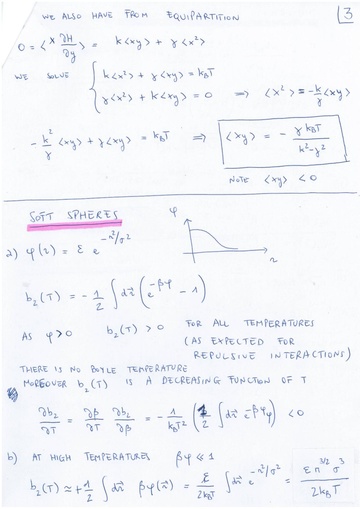 WE ALSO HAVE FROM EQUIPARTITION
3
0 = <x ∂H/∂y> = k<xy> + γ<x²>
WE SOLVE { k<x²> + γ<xy> = k_BT
γ<x²> + k<xy> = 0 ⟹ <x²> = -k/γ <xy>
-k²/γ <xy> + γ<xy> = k_BT ⟹ <xy> = - γ k_BT / (k²-γ²)
NOTE <xy> < 0
SOFT SPHERES
φ
r
a) φ(r) = ε e^(-r²/σ²)
b₂(T) = -1/2 ∫ dr⃗ (e^(-βφ) - 1)
AS φ>0 b₂(T) > 0 FOR ALL TEMPERATURES
(AS EXPECTED FOR
REPULSIVE INTERACTIONS)
THERE IS NO BOYLE TEMPERATURE
MOREOVER b₂(T) IS A DECREASING FUNCTION OF T
∂b₂/∂T = ∂β/∂T ∂b₂/∂β = - 1/(k_BT²) (1/2 ∫ dr⃗ e^(-βφ) φ) < 0
b) AT HIGH TEMPERATURES βφ ≪ 1
b₂(T) ≃ +1/2 ∫ dr⃗ βφ(r⃗) = ε/(2k_BT) ∫ dr⃗ e^(-r²/σ²) = ε π^(3/2) σ³ / (2k_BT)